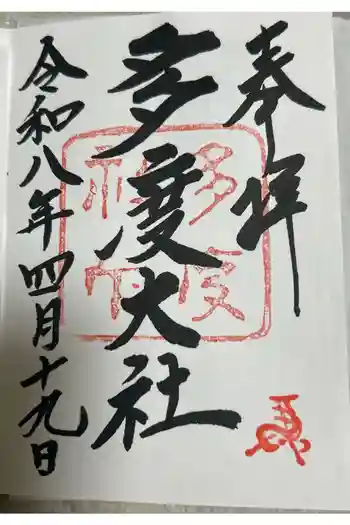 奉拝
多度大社
令和八年四月十九日
多度
神社